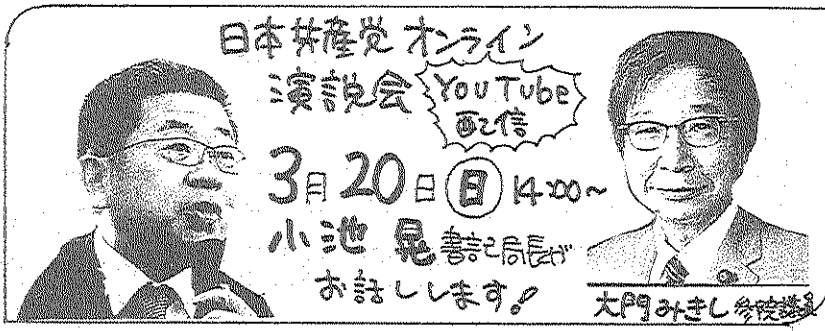 日本共産党 オンライン
演説会 YouTube
配信
3月20日(日) 14:00~
小池 晃 書記局長が
お話しします!
大門みきし 参院議員